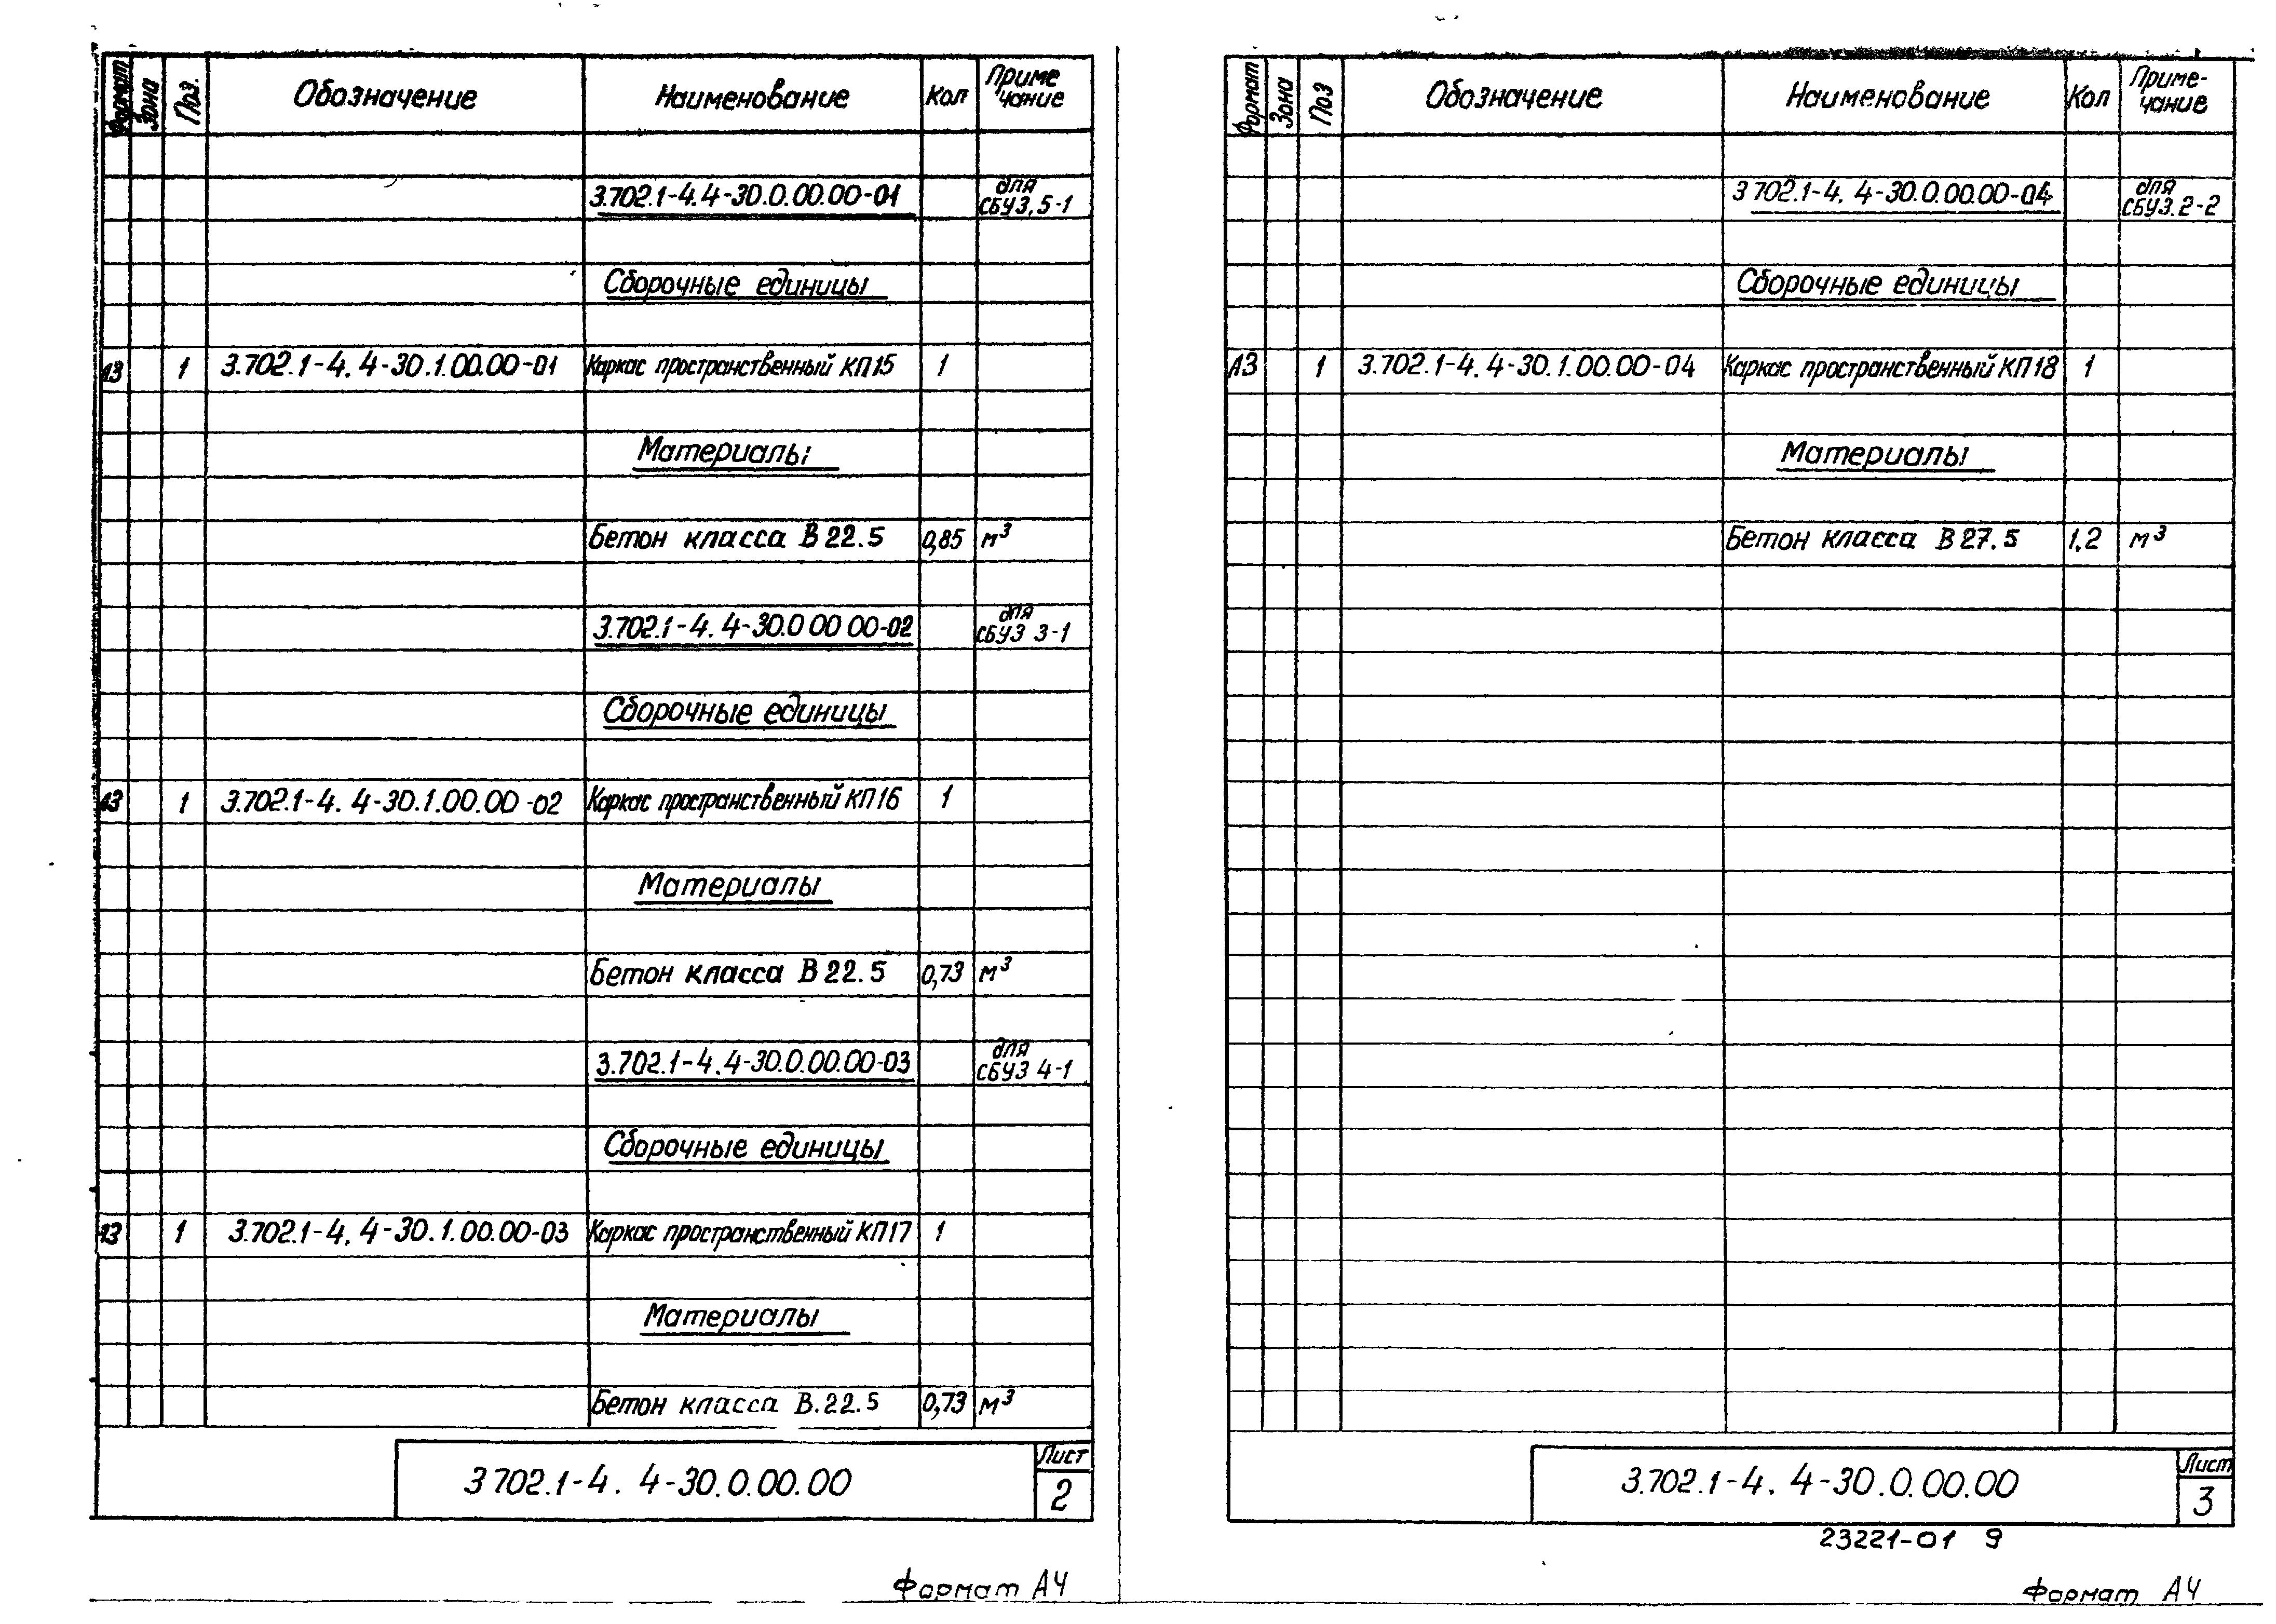 Формат Зона Поз. Обозначение Наименование Кол Приме чание
3.702.1-4.4-30.0.00.00-01 для СБУ3,5-1
Сборочные единицы
А3 1 3.702.1-4.4-30.1.00.00-01 Каркас пространственный КП15 1
Материалы
Бетон класса В 22.5 0,85 м³
3.702.1-4.4-30.0 00 00-02 для СБУ3 3-1
Сборочные единицы
А3 1 3.702.1-4.4-30.1.00.00-02 Каркас пространственный КП16 1
Материалы
Бетон класса В 22.5 0,73 м³
3.702.1-4.4-30.0.00.00-03 для СБУ3 4-1
Сборочные единицы
А3 1 3.702.1-4.4-30.1.00.00-03 Каркас пространственный КП17 1
Материалы
Бетон класса В.22.5 0,73 м³
3 702.1-4. 4-30.0.00.00 Лист 2
Формат А4
Формат Зона Поз Обозначение Наименование Кол Приме-чание
3 702.1-4.4-30.0.00.00-04 для СБУ3.2-2
Сборочные единицы
А3 1 3.702.1-4.4-30.1.00.00-04 Каркас пространственный КП18 1
Материалы
Бетон класса В 27.5 1.2 м³
3.702.1-4. 4-30.0.00.00 Лист 3
23221-01 9
Формат А4